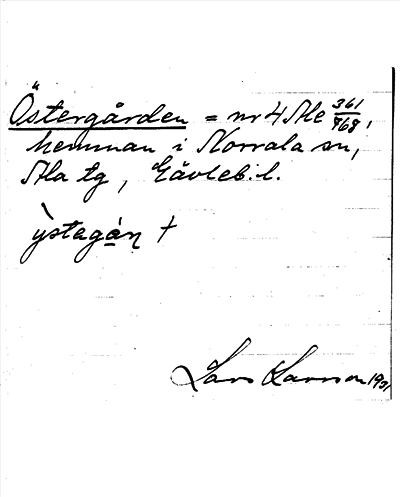 Östergården = nr 4 Ale 361/768,
hemman i Norrala sn,
Ala tg, Gävleb. l.
ỳstagáṇ †
Lars Larsson 1931